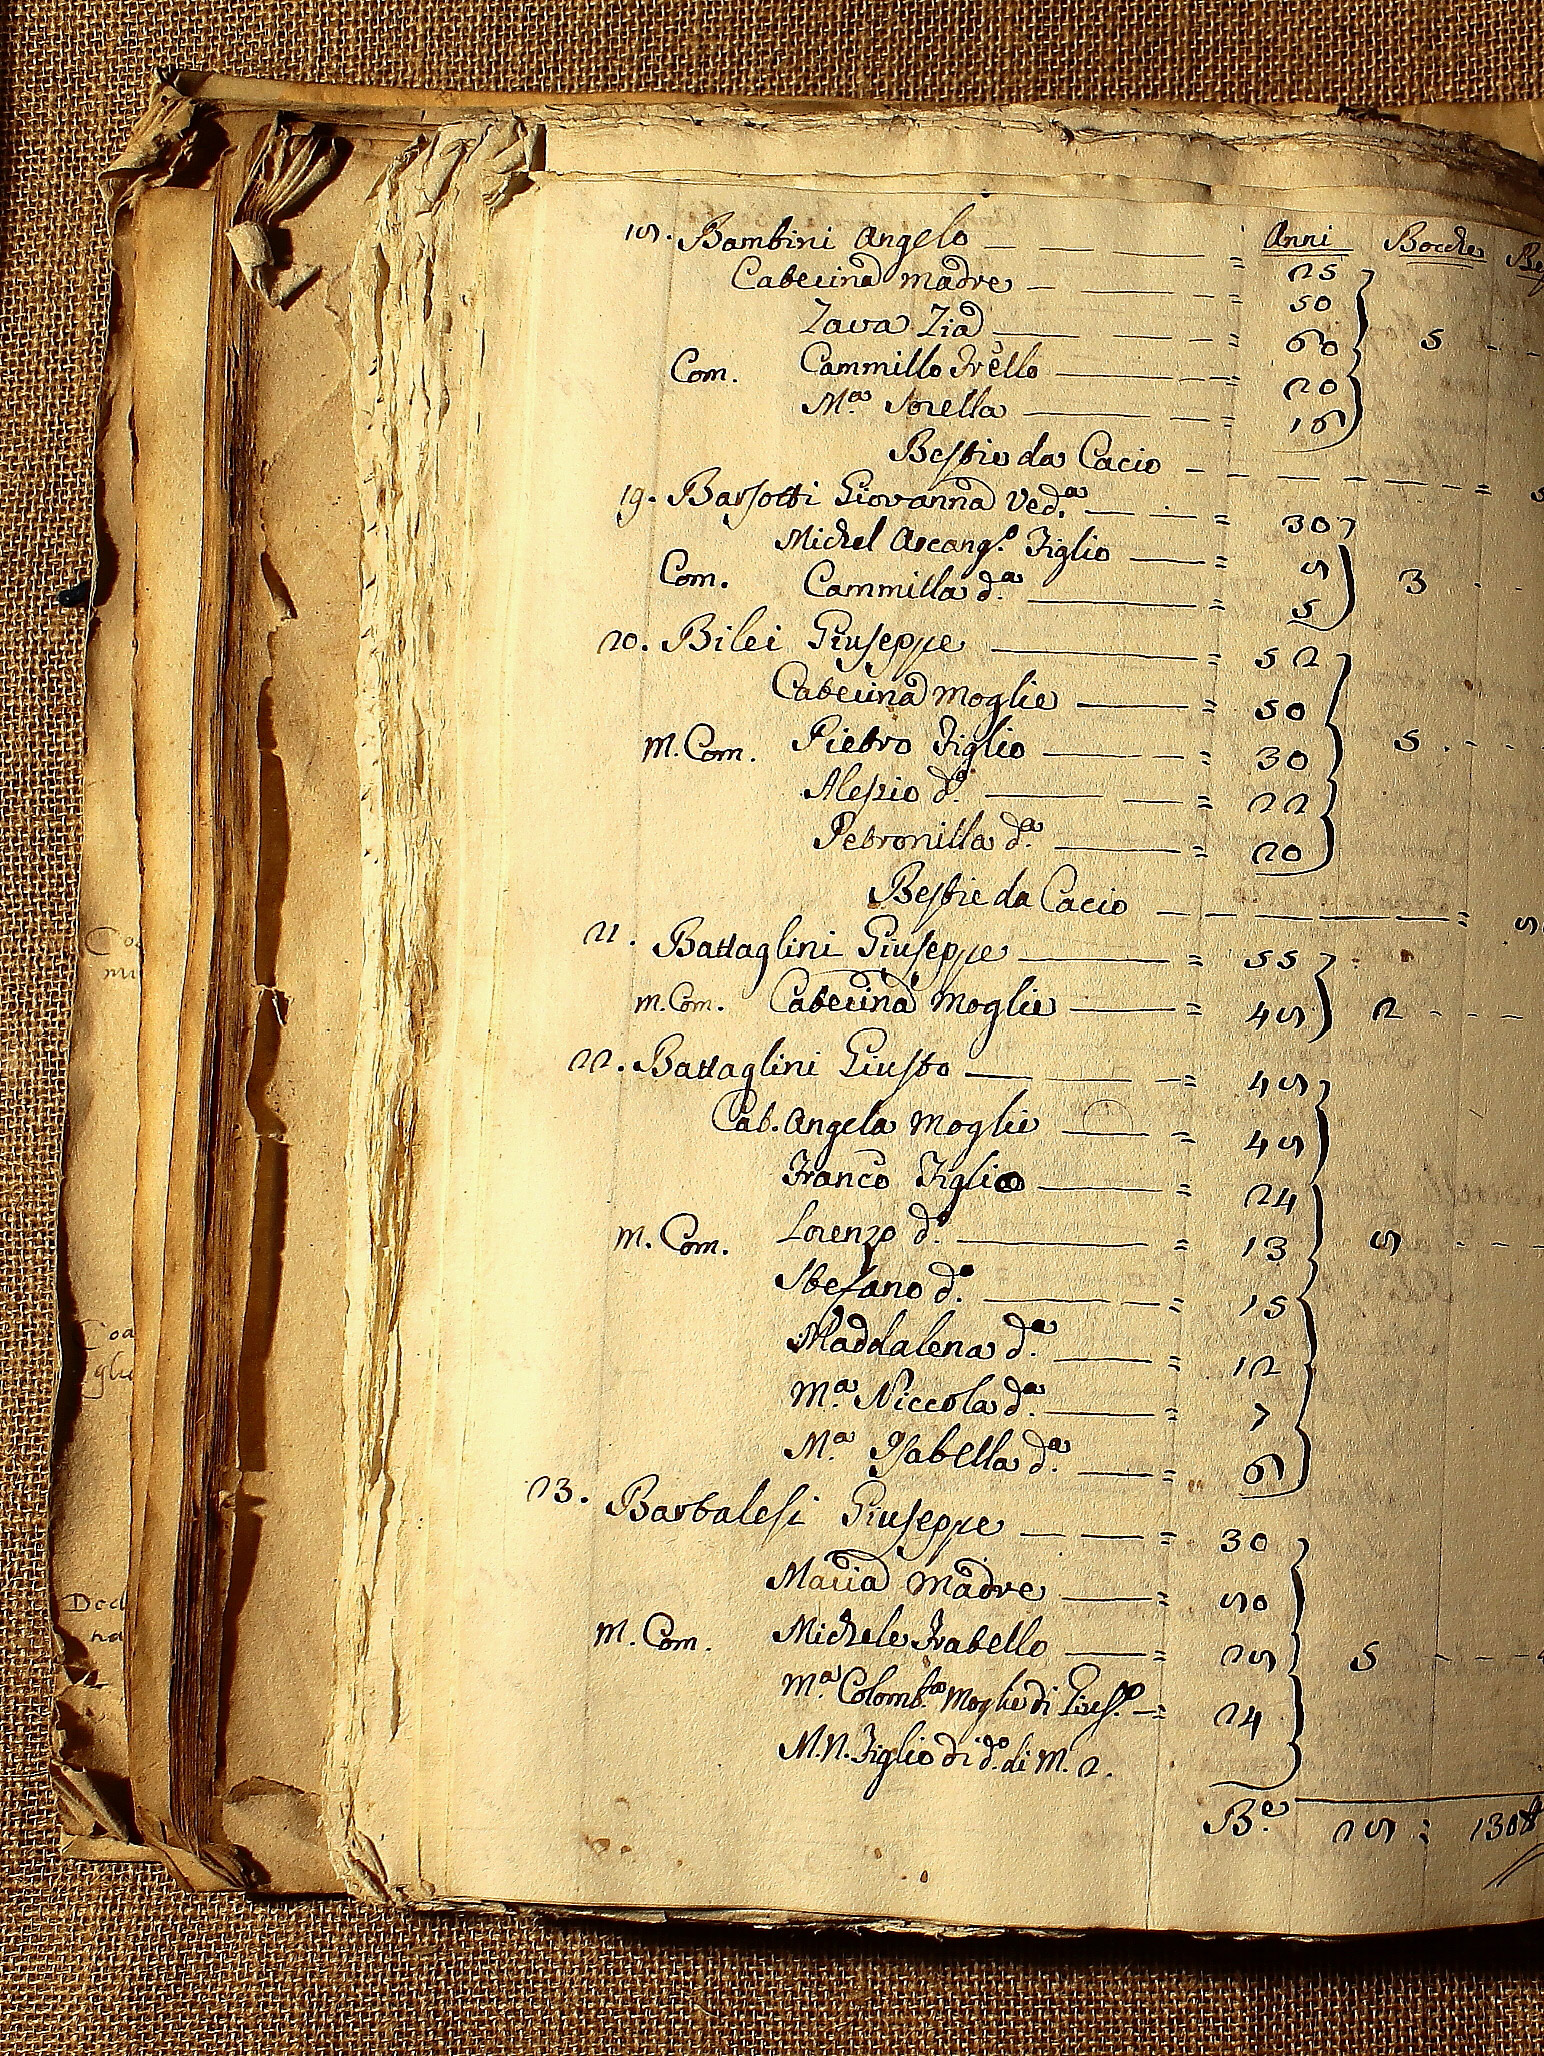 Anni Bocche
18. Bambini Angelo — — = 25
Caterina Madre — — = 50
Zara Zia — — = 60 5
Com. Cammillo Frẽllo — — = 20
Mª Sorella — — = 16
Bestie da Cacio — — =
19. Barsotti Giovanna Vedª — — = 30
Michel Arcangº Figlio — = 8
Com. Cammilla dª — = 5 3
20. Bilei Giuseppe — = 52
Caterina Moglie — = 50
m. Com. Pietro Figlio — = 30 5
Alesio dº — — = 22
Petronilla dª — = 20
Bestie da Cacio — — =
21. Battaglini Giuseppe — = 55
m. Com. Caterina Moglie — = 48 2
22. Battaglini Giusto — — = 48
Cat. Angela Moglie — = 48
Franco Figlio — = 24
m. Com. Lorenzo dº — = 13 8
Stefano dº — — = 15
Maddalena dª — = 12
Mª Niccola dª — = 7
Mª Isabella dª — = 6
23. Bartalesi Giuseppe — — = 30
Maria Madre — = 80
m. Com. Michele Fratello — = 28 5
Mª Colombª Moglie di Giusᵉ — = 24
M. N. Figlio di dº di M. 2.
Bᵉ 28 :